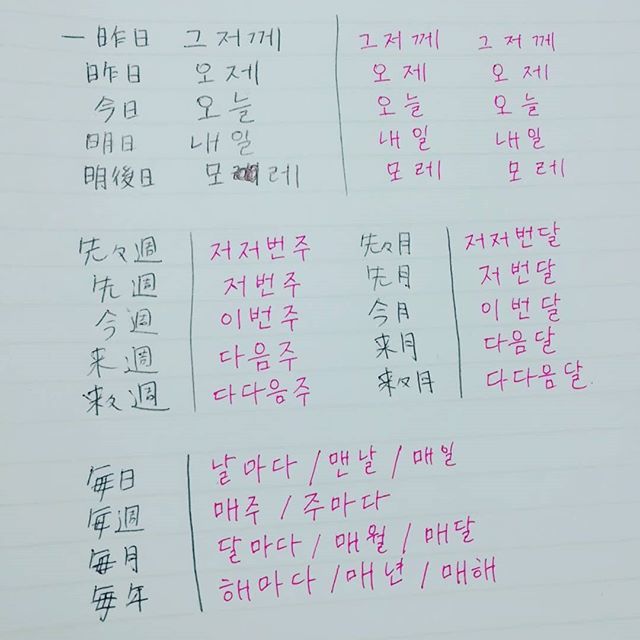 一昨日 그저께 그저께 그저께
昨日 오제 오제 오제
今日 오늘 오늘 오늘
明日 내일 내일 내일
明後日 모레 모레 모레
先々週 저저번주 先々月 저저번달
先週 저번주 先月 저번달
今週 이번주 今月 이번달
来週 다음주 来月 다음달
来々週 다다음주 来々月 다다음달.
毎日 날마다 / 맨날 / 매일
毎週 매주 / 주마다
毎月 달마다 / 매월 / 매달
毎年 해마다 / 매년 / 매해